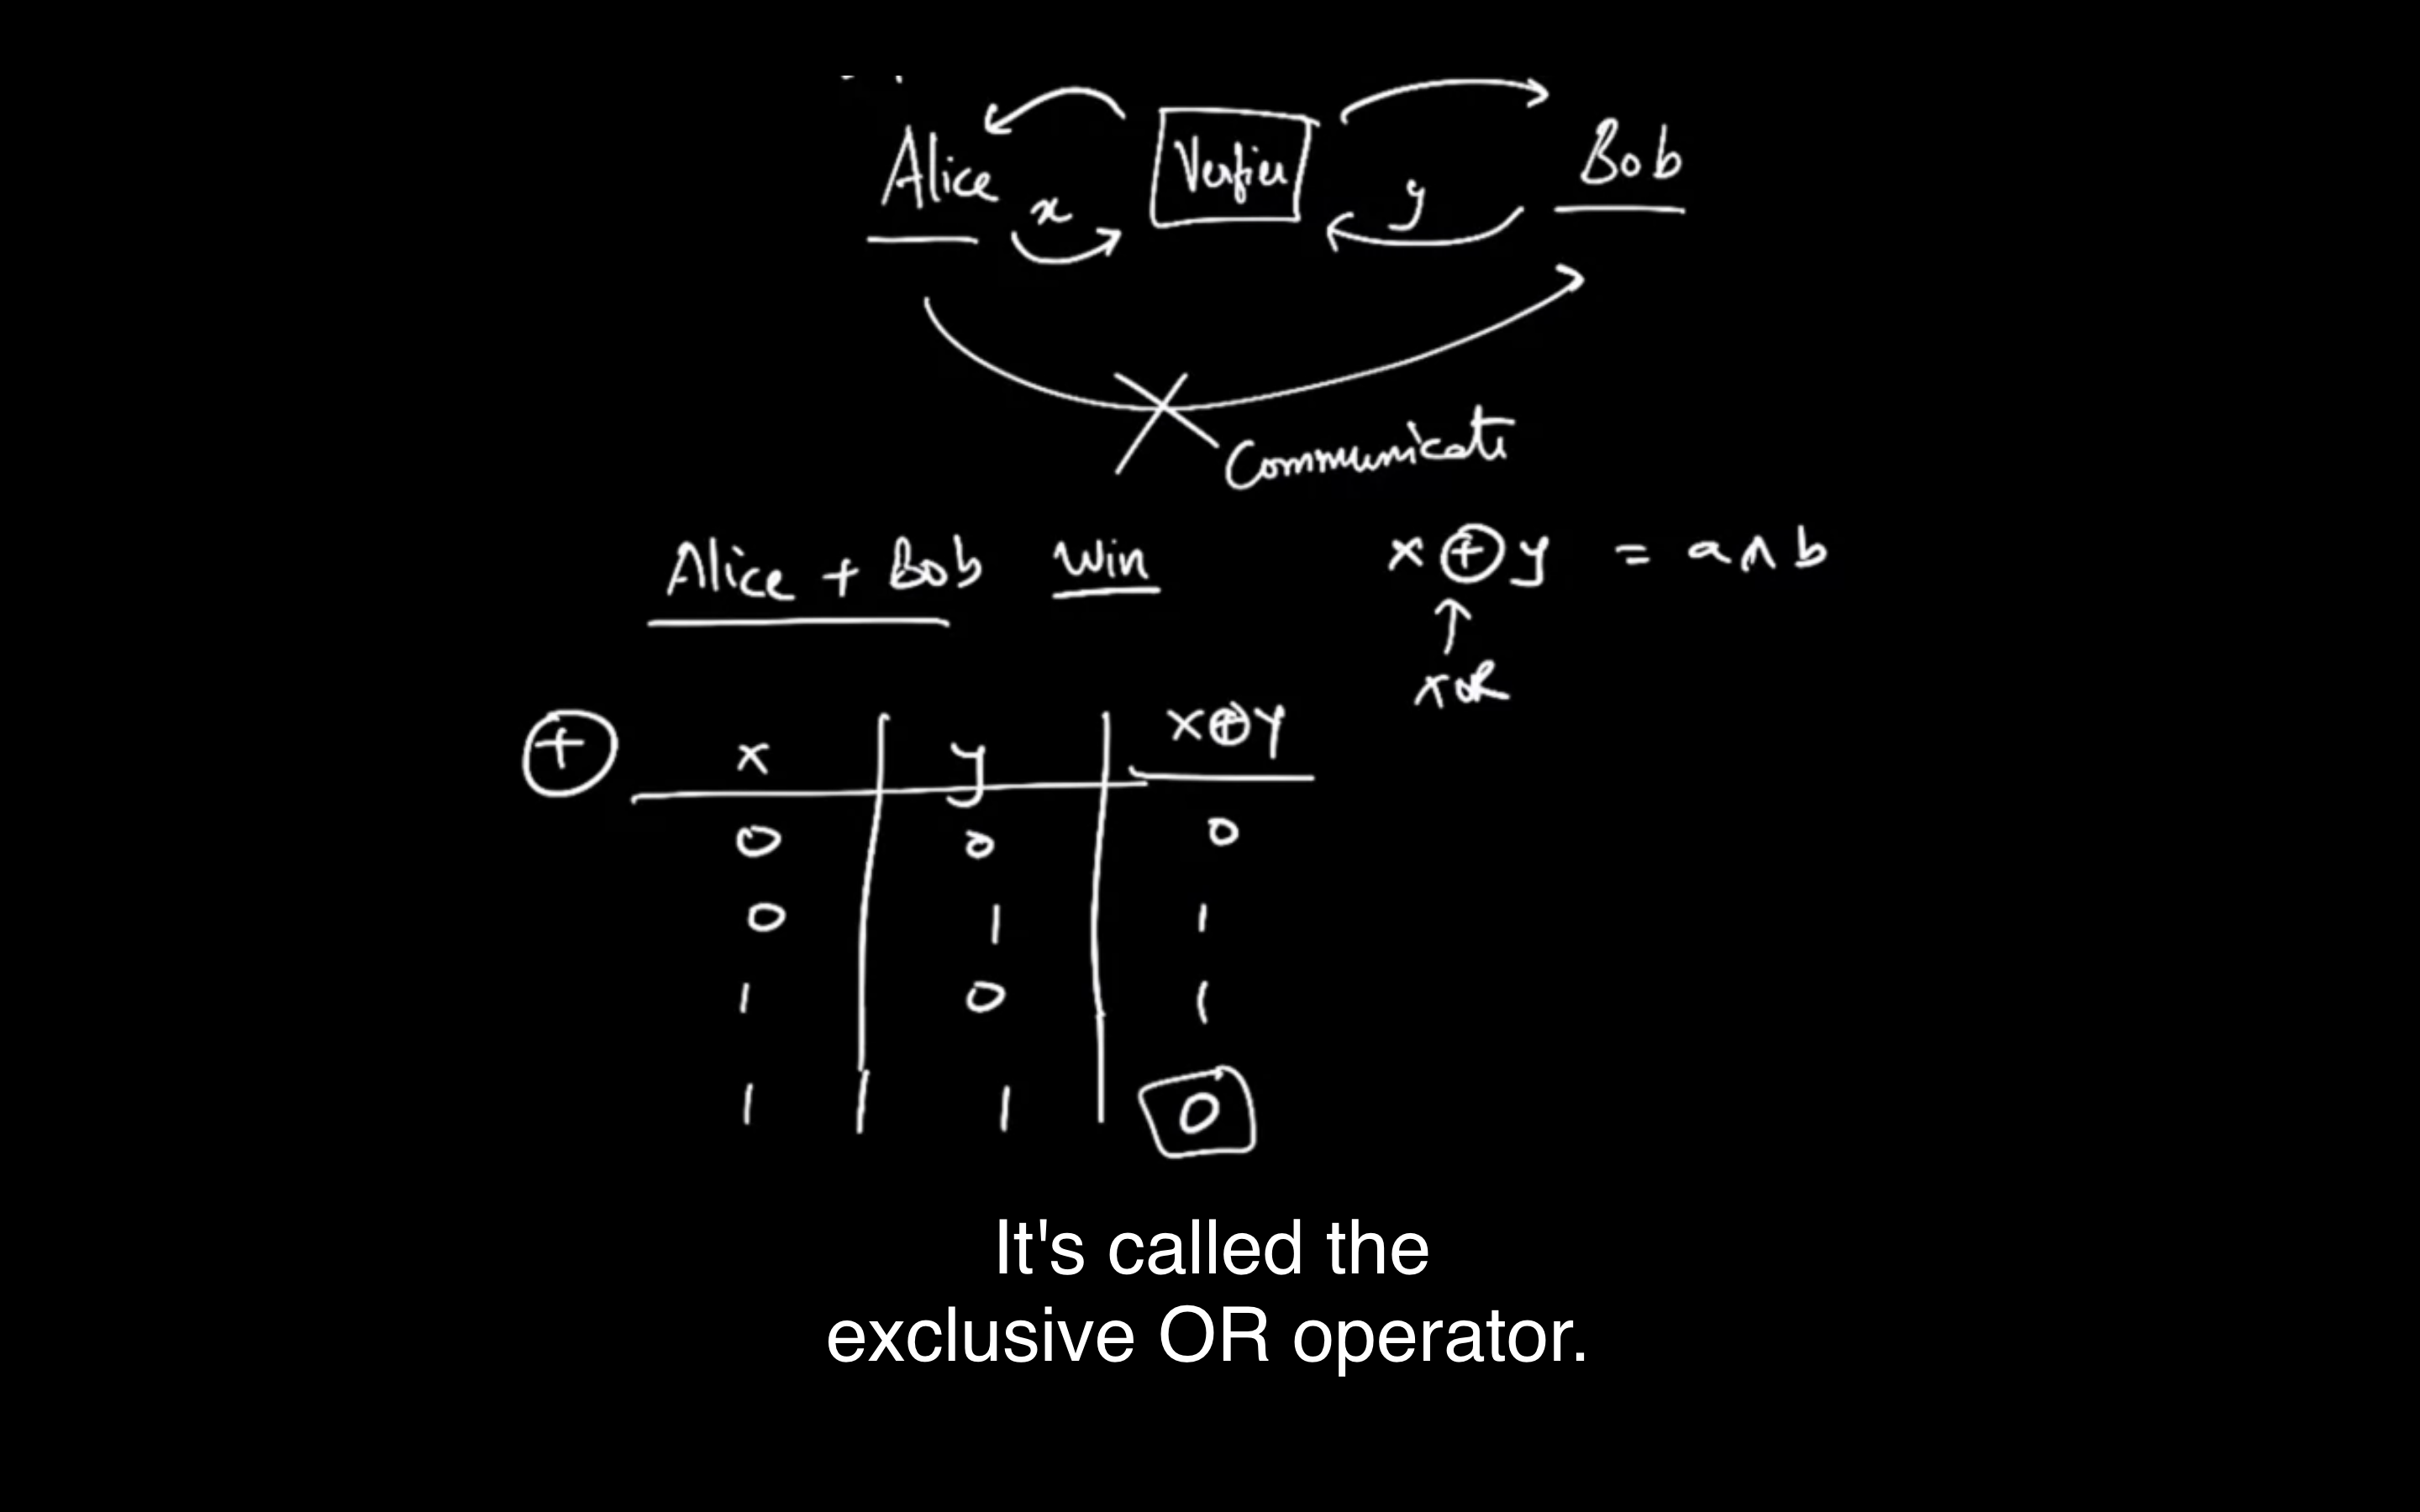 Alice
Verfier
Bob
x
y
Communicate
Alice + Bob Win
x ⊕ y = a ∧ b
↑
XOR
⊕ x y x⊕y
0 0 0
0 1 1
1 0 1
1 1 0
It's called the
exclusive OR operator.